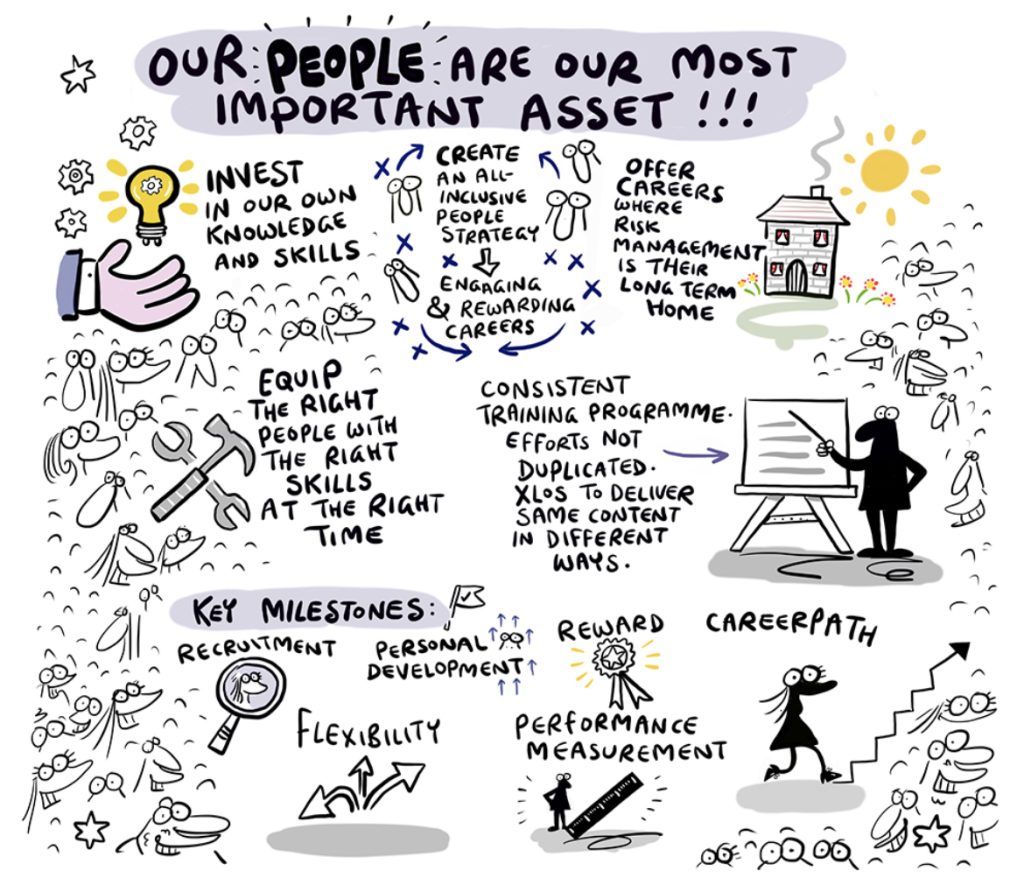 OUR PEOPLE ARE OUR MOST
IMPORTANT ASSET !!!
INVEST
IN OUR OWN
KNOWLEDGE
AND SKILLS
CREATE
AN ALL-
INCLUSIVE
PEOPLE
STRATEGY
ENGAGING
& REWARDING
CAREERS
OFFER
CAREERS
WHERE
RISK
MANAGEMENT
IS THEIR
LONG TERM
HOME
EQUIP
THE RIGHT
PEOPLE WITH
THE RIGHT
SKILLS
AT THE RIGHT
TIME
CONSISTENT
TRAINING PROGRAMME.
EFFORTS NOT
DUPLICATED.
XLOS TO DELIVER
SAME CONTENT
IN DIFFERENT
WAYS.
KEY MILESTONES:
RECRUITMENT
PERSONAL
DEVELOPMENT
REWARD
CAREERPATH
FLEXIBILITY
PERFORMANCE
MEASUREMENT